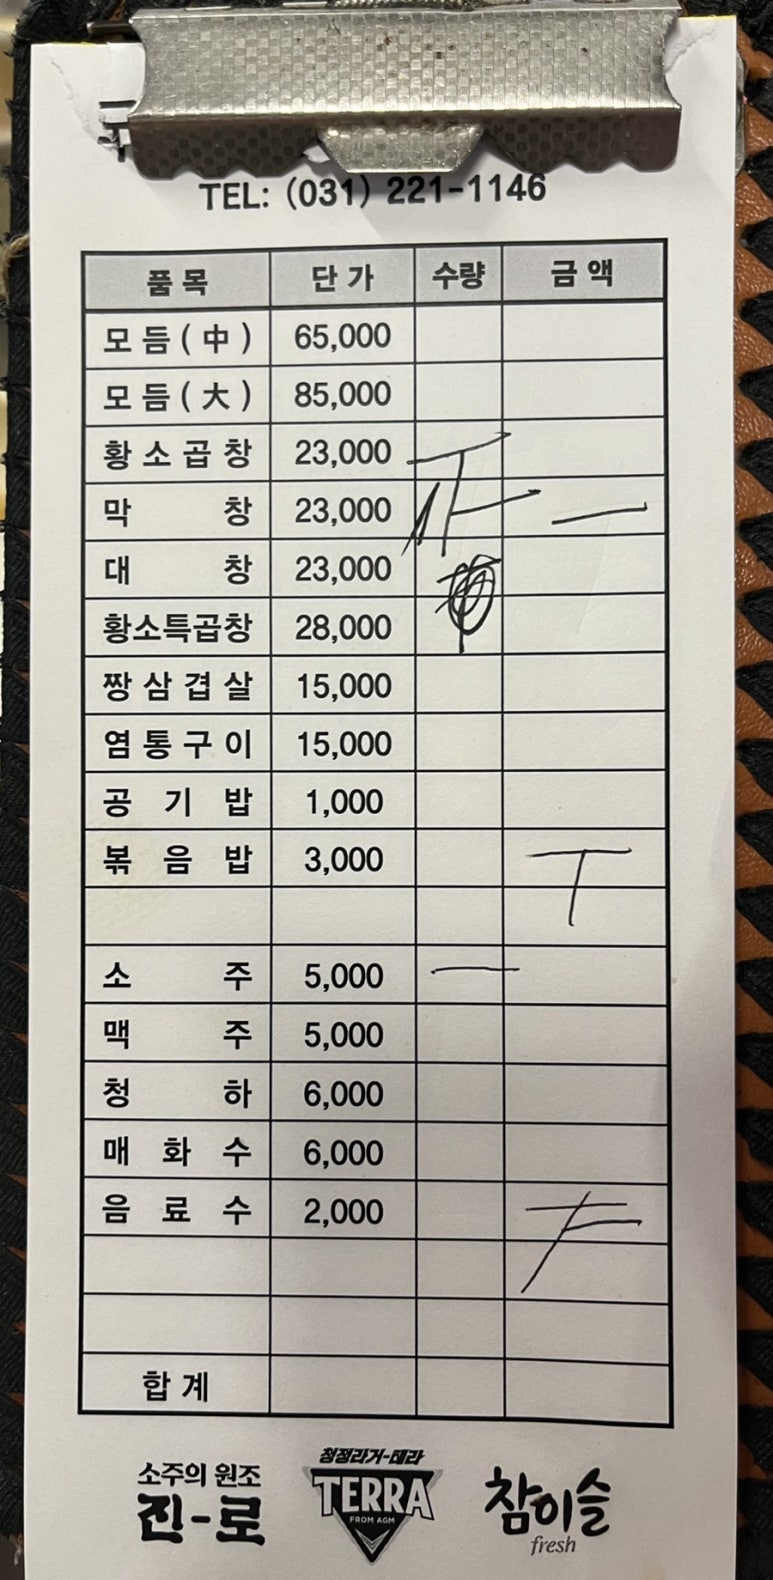 TEL: (031) 221-1146
품 목 단 가 수량 금 액
모 듬 ( 中 ) 65,000
모 듬 ( 大 ) 85,000
황 소 곱 창 23,000
막 창 23,000 一
대 창 23,000
황소특곱창 28,000
짱 삼 겹 살 15,000
염 통 구 이 15,000
공 기 밥 1,000
볶 음 밥 3,000 T
소 주 5,000 一
맥 주 5,000
청 하 6,000
매 화 수 6,000
음 료 수 2,000
합 계
소주의 원조
진-로
청정라거-테라
TERRA
FROM AGM
참이슬
fresh